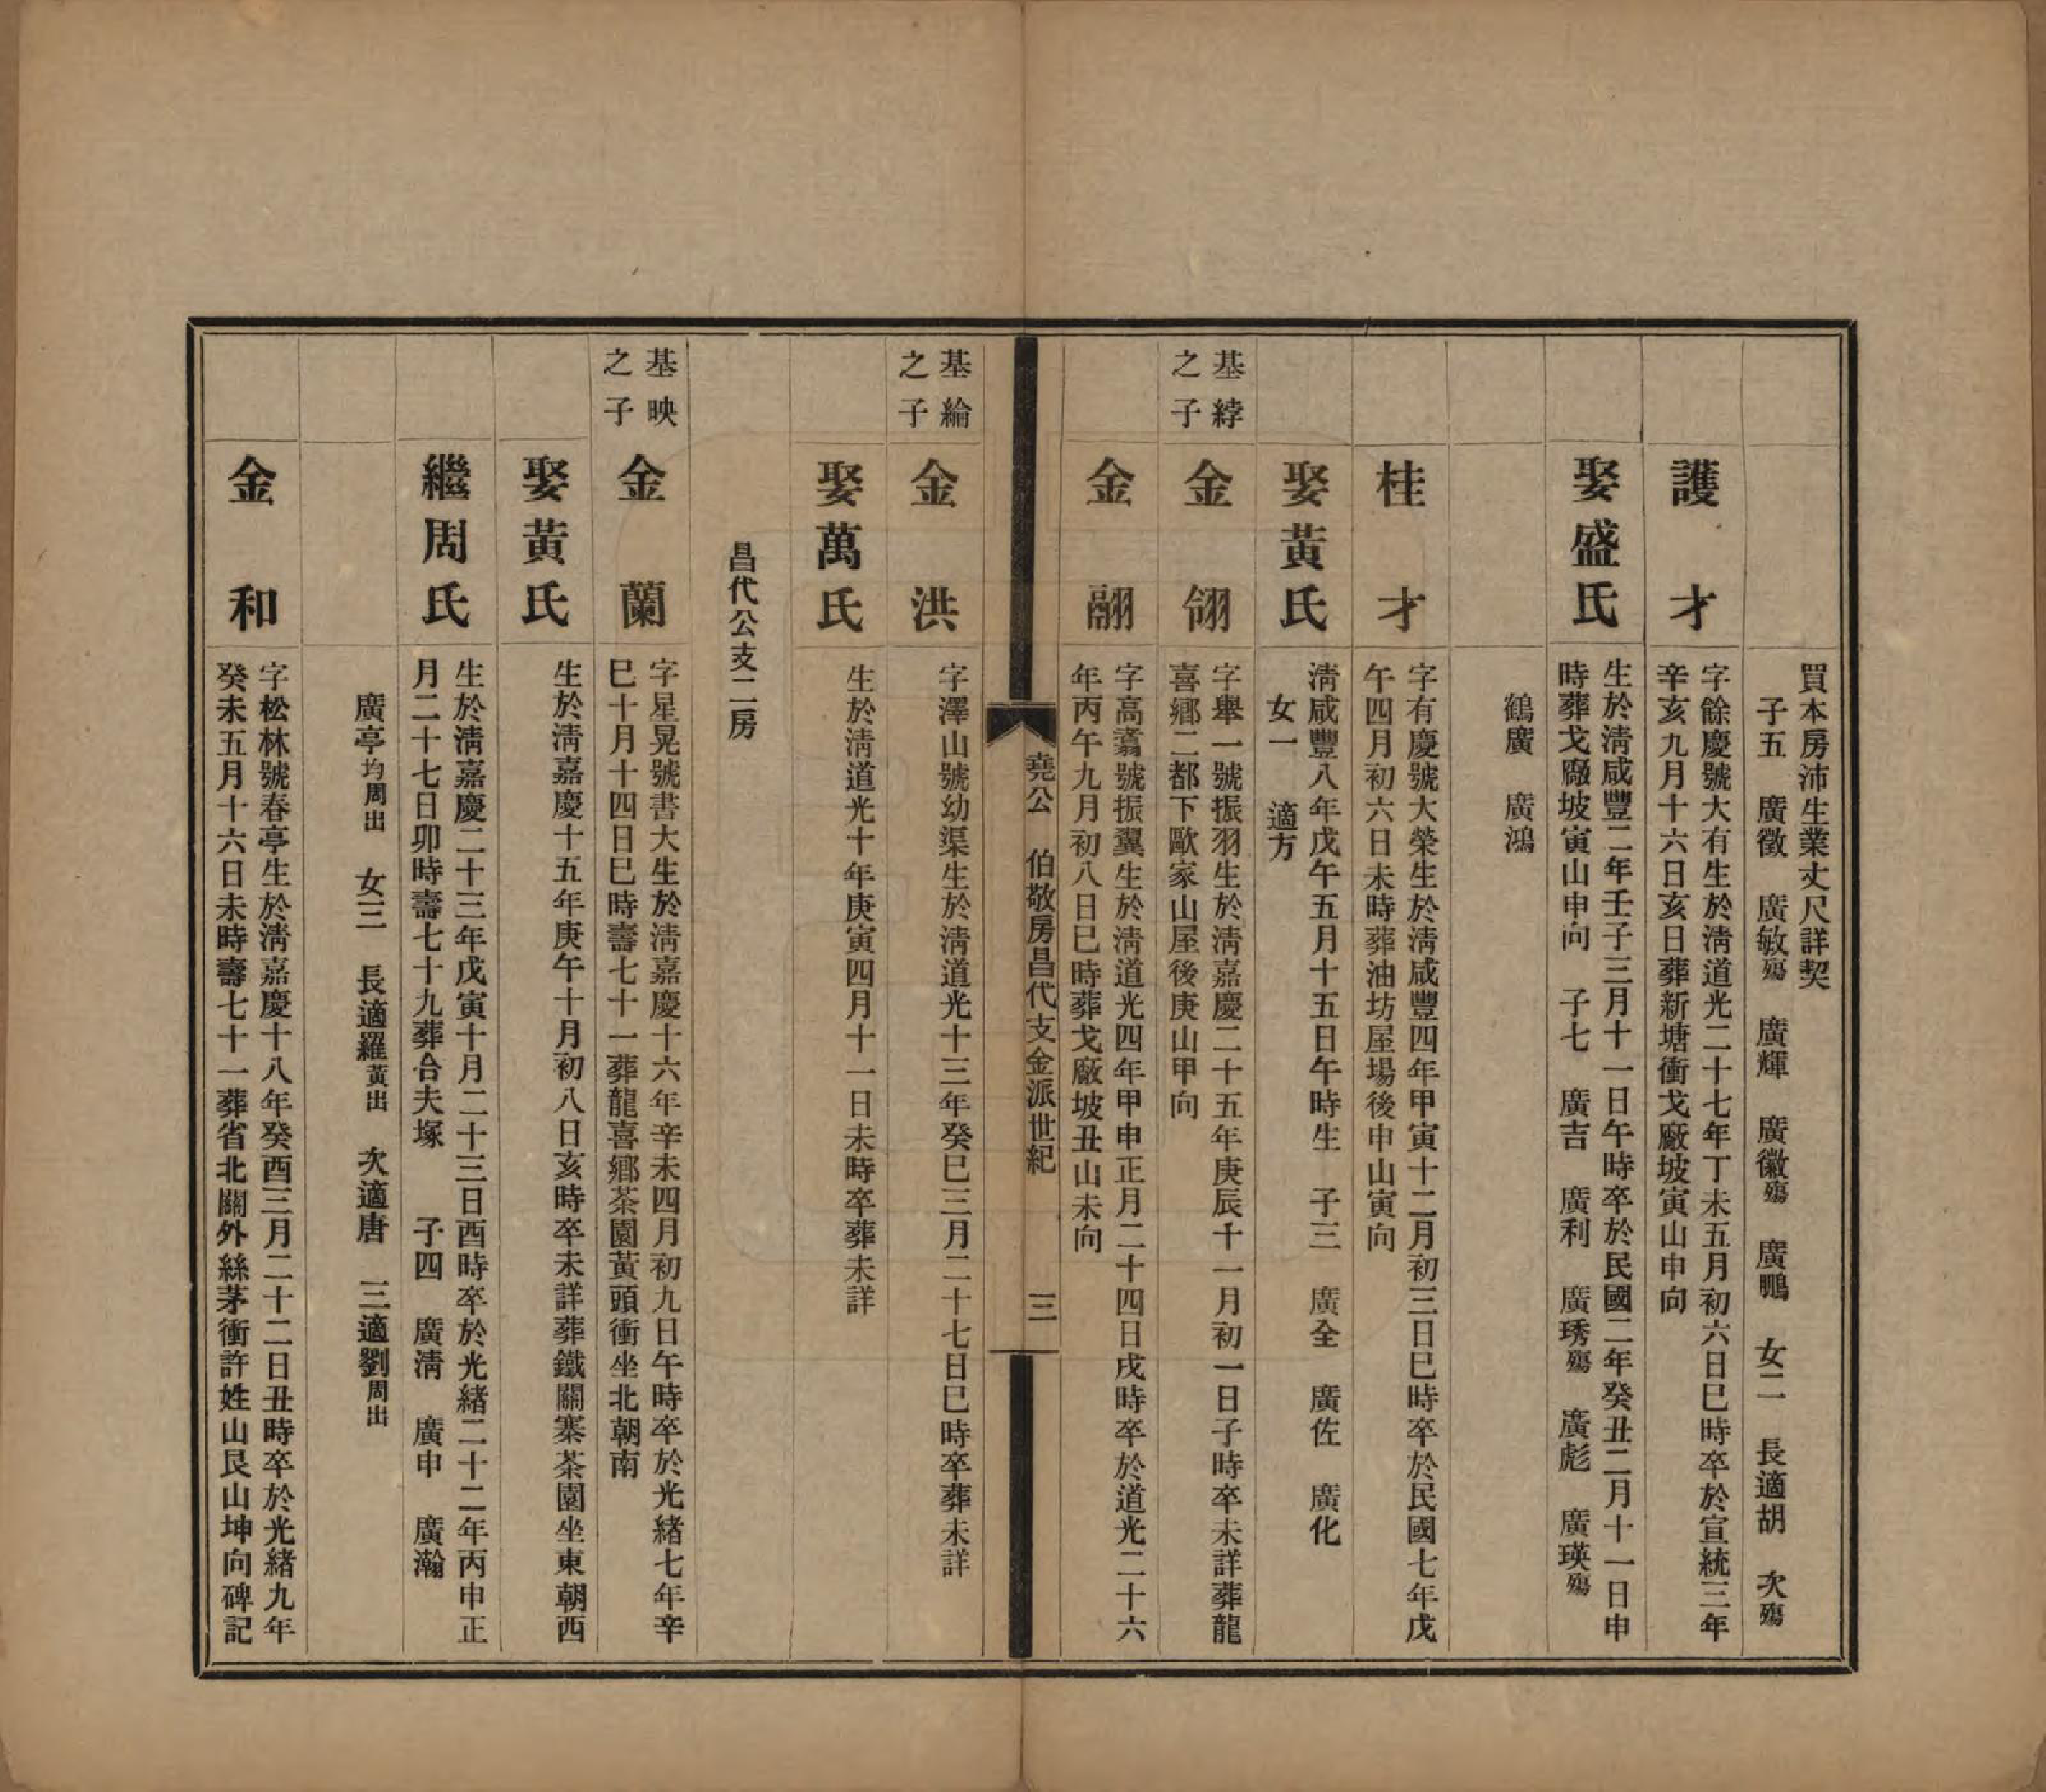 買本房沛生業丈尺詳契
子五　廣徵　廣敏殤　廣輝　廣徽殤　廣鵬　女二　長適胡　次殤
護才
字餘慶號大有生於淸道光二十七年丁未五月初六日巳時卒於宣統三年
辛亥九月十六日亥日葬新塘衝戈廠坡寅山申向
娶盛氏
生於淸咸豐二年壬子三月十一日午時卒於民國二年癸丑二月十一日申
時葬戈廠坡寅山申向　子七　廣吉　廣利　廣琇殤　廣彪　廣瑛殤
鶴廣　廣鴻
桂才
字有慶號大榮生於淸咸豐四年甲寅十二月初三日巳時卒於民國七年戊
午四月初六日未時葬油坊屋場後申山寅向
娶黃氏
淸咸豐八年戊午五月十五日午時生　子三　廣全　廣佐　廣化
女一　適方
基綍
之子
金翎
字舉一號振羽生於淸嘉慶二十五年庚辰十一月初一日子時卒未詳葬龍
喜鄕二都下歐家山屋後庚山甲向
金翮
字高翥號振翼生於淸道光四年甲申正月二十四日戌時卒於道光二十六
年丙午九月初八日巳時葬戈廠坡丑山未向
堯公　伯敬房昌代支金派世紀　三
基綸
之子
金洪
字澤山號幼渠生於淸道光十三年癸巳三月二十七日巳時卒葬未詳
娶萬氏
生於淸道光十年庚寅四月十一日未時卒葬未詳
昌代公支二房
基映
之子
金蘭
字星晃號書大生於淸嘉慶十六年辛未四月初九日午時卒於光緖七年辛
巳十月十四日巳時壽七十一葬龍喜鄕茶園黃頭衝坐北朝南
娶黃氏
生於淸嘉慶十五年庚午十月初八日亥時卒未詳葬鐵關寨茶園坐東朝西
繼周氏
生於淸嘉慶二十三年戊寅十月二十三日酉時卒於光緖二十二年丙申正
月二十七日卯時壽七十九葬合夫塚　子四　廣淸　廣申　廣瀚
廣亭均周出　女三　長適羅黃出　次適唐　三適劉周出
金和
字松林號春亭生於淸嘉慶十八年癸酉三月二十二日丑時卒於光緖九年
癸未五月十六日未時壽七十一葬省北關外絲茅衝許姓山艮山坤向碑記